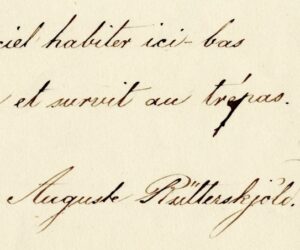 ciel habiter ici-bas
et survit au trépas.
Auguste Rütterskjöld.